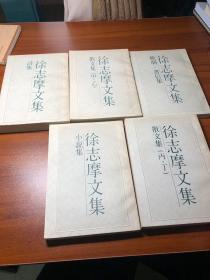 徐志摩文集
詩集
徐志摩文集
散文集(甲·乙)
徐志摩文集
徐志摩文集
小說集
徐志摩文集
散文集(丙·丁)